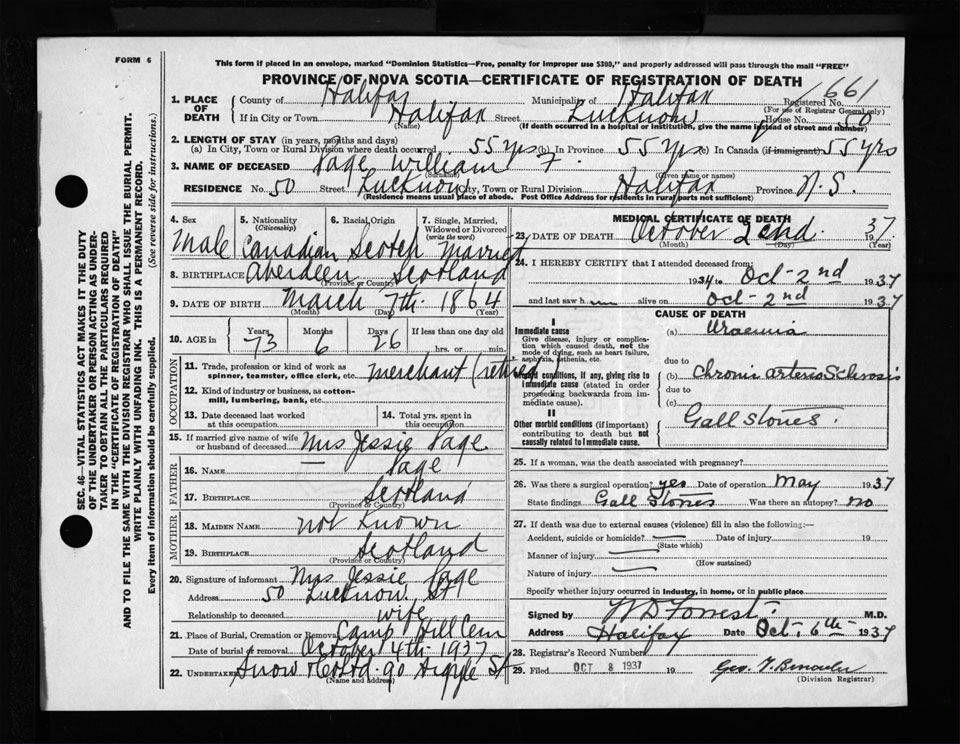 FORM 6
This form if placed in an envelope, marked "Dominion Statistics—Free, penalty for improper use $300," and properly addressed will pass through the mail "FREE"
PROVINCE OF NOVA SCOTIA—CERTIFICATE OF REGISTRATION OF DEATH
1. PLACE OF DEATH { County of Halifax Municipality of Halifax Registered No. 1661
(For use of Registrar General only)
If in City or Town Halifax Street Lucknow House No. 50
(Name) (If death occurred in a hospital or institution, give the name instead of street and number)
2. LENGTH OF STAY (in years, months and days)
(a) In City, Town or Rural Division where death occurred 55 yrs (b) In Province 55 yrs (c) In Canada (if immigrant) 55 yrs
3. NAME OF DECEASED Page William F.
(Surname) (Given name or names)
RESIDENCE No. 50 Street Lucknow City, Town or Rural Division Halifax Province N.S.
(Residence means usual place of abode. Post Office Address for residents in rural parts not sufficient)
4. Sex Male
5. Nationality (Citizenship) Canadian
6. Racial Origin Scotch
7. Single, Married, Widowed or Divorced (write the word) Married
8. BIRTHPLACE Aberdeen Scotland
(Province or Country)
9. DATE OF BIRTH March 7th 1864
(Month) (Day) (Year)
10. AGE in { Years 73 Months 6 Days 26 If less than one day old
hrs. or min.
OCCUPATION
11. Trade, profession or kind of work as spinner, teamster, office clerk, etc. Merchant (retired
12. Kind of industry or business, as cotton-mill, lumbering, bank, etc.
13. Date deceased last worked at this occupation
14. Total yrs. spent in this occupation
15. If married give name of wife or husband of deceased Mrs Jessie Page
FATHER
16. NAME — Page
17. BIRTHPLACE Scotland
(Province or Country)
MOTHER
18. MAIDEN NAME not Known
19. BIRTHPLACE Scotland
(Province or Country)
20. Signature of informant Mrs Jessie Page
Address 50 Lucknow St
Relationship to deceased wife
21. Place of Burial, Cremation or Removal Camp Hill Cem
Date of burial or removal October 4th 1937
22. UNDERTAKER Snow & Co Ltd. 90 Argyle St
(Name and address)
MEDICAL CERTIFICATE OF DEATH
23. DATE OF DEATH October 2nd. 1937
(Month) (Day) (Year)
24. I HEREBY CERTIFY that I attended deceased from:
1934 to Oct-2nd 1937
and last saw him alive on Oct-2nd 1937
CAUSE OF DEATH
I
Immediate cause
Give disease, injury or complication which caused death, not the mode of dying, such as heart failure, asphyxia, asthenia, etc.
(a) Uraemia
due to
Morbid conditions, if any, giving rise to immediate cause (stated in order proceeding backwards from immediate cause).
(b) Chronic arterio Sclerosis
due to
(c)
II
Other morbid conditions (if important) contributing to death but not causally related to immediate cause.
Gall Stones.
25. If a woman, was the death associated with pregnancy?
26. Was there a surgical operation? yes Date of operation May 1937
State findings Gall Stones Was there an autopsy? no
27. If death was due to external causes (violence) fill in also the following:—
Accident, suicide or homicide? — Date of injury 19
(State which)
Manner of injury —
(How sustained)
Nature of injury —
Specify whether injury occurred in Industry, in home, or in public place
Signed by W D Forrest. M.D.
Address Halifax Date Oct. 6th 1937
28. Registrar's Record Number
29. Filed OCT 8 1937 19
(Division Registrar)
SEC. 46—VITAL STATISTICS ACT MAKES IT THE DUTY
OF THE UNDERTAKER OR PERSON ACTING AS UNDER-
TAKER TO OBTAIN ALL THE PARTICULARS REQUIRED
IN THE "CERTIFICATE OF REGISTRATION OF DEATH"
AND TO FILE THE SAME WITH THE DIVISION REGISTRAR WHO SHALL ISSUE THE BURIAL PERMIT.
WRITE PLAINLY WITH UNFADING INK. THIS IS A PERMANENT RECORD.
Every item of information should be carefully supplied. (See reverse side for instructions.)